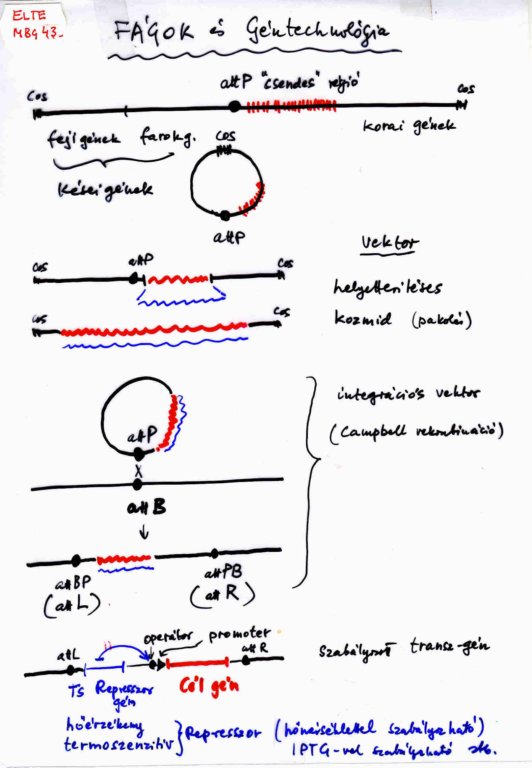 ELTE
MBG 43-
FÁGOK és Géntechnológia
attP "csendes" régió
cos
cos
fejl gének
farokg.
korai gének
cos
Késői gének
attP
Vektor
cos
attP
cos
helyettesítéses
cos
cos
kozmid (pakolás)
integrációs vektor
attP
(Campbell rekombináció)
X
attB
attBP
attPB
(attL)
(attR)
operátor
promoter
attL
attR
szabályozott transz-gén
Ts Represszor
gén
Cél gén
hőérzékeny
termoszenzitív
Represszor (hőmérséklettel szabályozható)
IPTG-vel szabályozható stb.